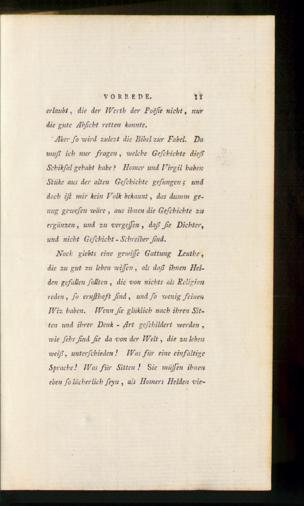 VORREDE. 11
erlaubt, die der Werth der Poësie nicht, nur
die gute Abſicht retten konnte.
Aber ſo wird zulezt die Bibel zur Fabel. Da
muß ich nur fragen, welche Geſchichte dieß
Schikſal gehabt habe? Homer und Virgil haben
Stüke aus der alten Geſchichte geſungen; und
doch iſt mir kein Volk bekannt, das dumm ge-
nug geweſen wäre, aus ihnen die Geſchichte zu
ergänzen, und zu vergeſſen, daß ſie Dichter,
und nicht Geſchicht-Schreiber ſind.
Noch giebts eine gewiſſe Gattung Leuthe,
die zu gut zu leben wiſſen, als daß ihnen Hel-
den gefallen ſollten, die von nichts als Religion
reden, ſo ernſthaft ſind, und ſo wenig feinen
Wiz haben. Wenn ſie glüklich nach ihren Sit-
ten und ihrer Denk-Art geſchildert werden,
wie ſehr ſind ſie da von der Welt, die zu leben
weiſt, unterſchieden! Was für eine einfältige
Sprache! Was für Sitten! Sie müſſen ihnen
eben ſo lächerlich ſeyn, als Homers Helden vie-